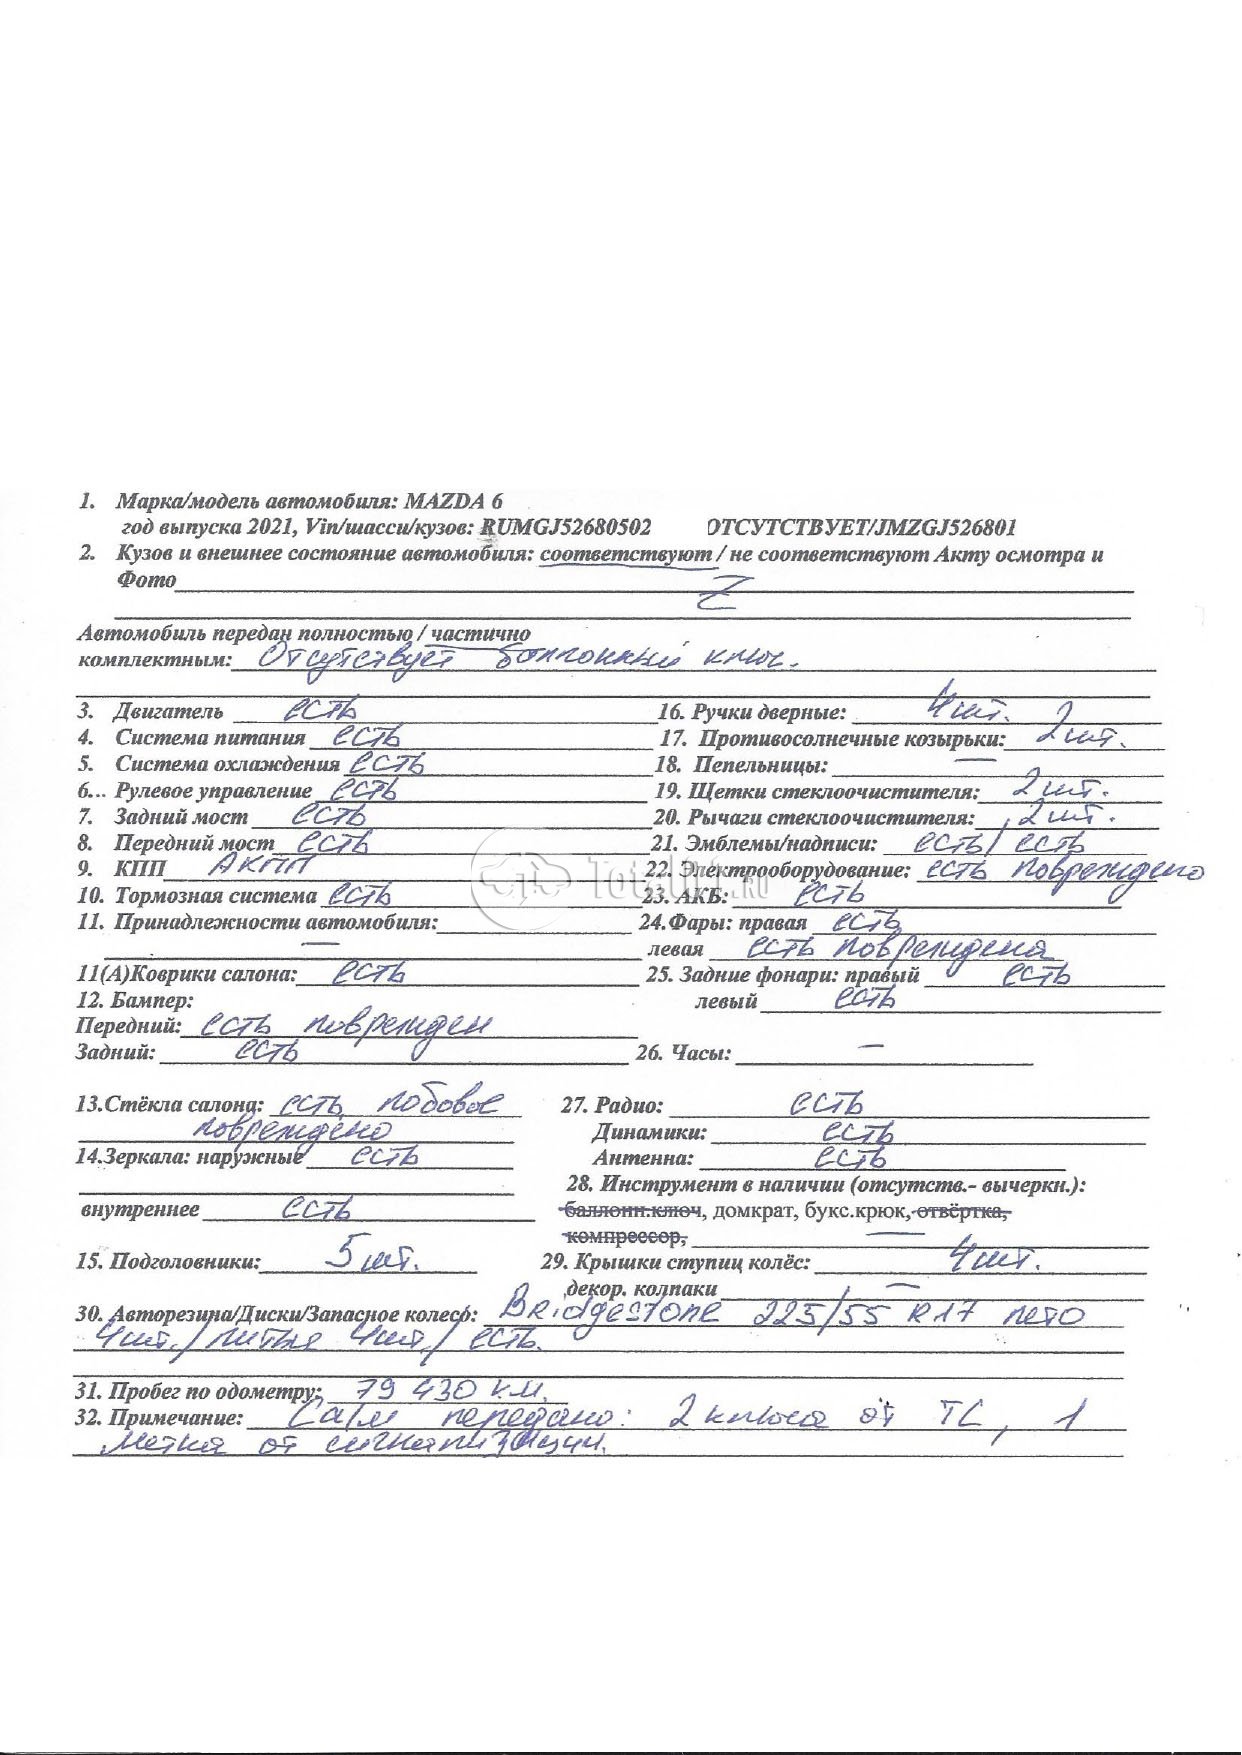 1. Марка/модель автомобиля: MAZDA 6
год выпуска 2021, Vin/шасси/кузов: RUMGJ52680502 ОТСУТСТВУЕТ/JMZGJ526801
2. Кузов и внешнее состояние автомобиля: соответствуют / не соответствуют Акту осмотра и
Фото Z
Автомобиль передан полностью / частично
комплектным: Отсутствует баллонный ключ.
3. Двигатель есть 16. Ручки дверные: 4 шт.
4. Система питания есть 17. Противосолнечные козырьки: 2 шт.
5. Система охлаждения есть 18. Пепельницы: —
6... Рулевое управление есть 19. Щетки стеклоочистителя: 2 шт.
7. Задний мост есть 20. Рычаги стеклоочистителя: 2 шт.
8. Передний мост есть 21. Эмблемы/надписи: есть/есть
9. КПП АКПП 22. Электрооборудование: есть повреждено
TotalAt.RU
10. Тормозная система есть 23. АКБ: есть
11. Принадлежности автомобиля: — 24.Фары: правая есть
левая есть повреждена
11(А)Коврики салона: есть 25. Задние фонари: правый есть
12. Бампер: левый есть
Передний: есть поврежден
Задний: есть 26. Часы: —
13.Стёкла салона: есть, лобовое 27. Радио: есть
повреждено Динамики: есть
14.Зеркала: наружные есть Антенна: есть
28. Инструмент в наличии (отсутств.- вычеркн.):
внутреннее есть баллонн.ключ, домкрат, букс.крюк, отвёртка,
компрессор, —
15. Подголовники: 5 шт. 29. Крышки ступиц колёс: 4 шт.
декор. колпаки —
30. Авторезина/Диски/Запасное колесо: Bridgestone 225/55 R17 лето
4шт./литые 4шт./ есть.
31. Пробег по одометру: 79 430 км.
32. Примечание: С а/м передано: 2 ключа от ТС, 1
метка от сигнализации.